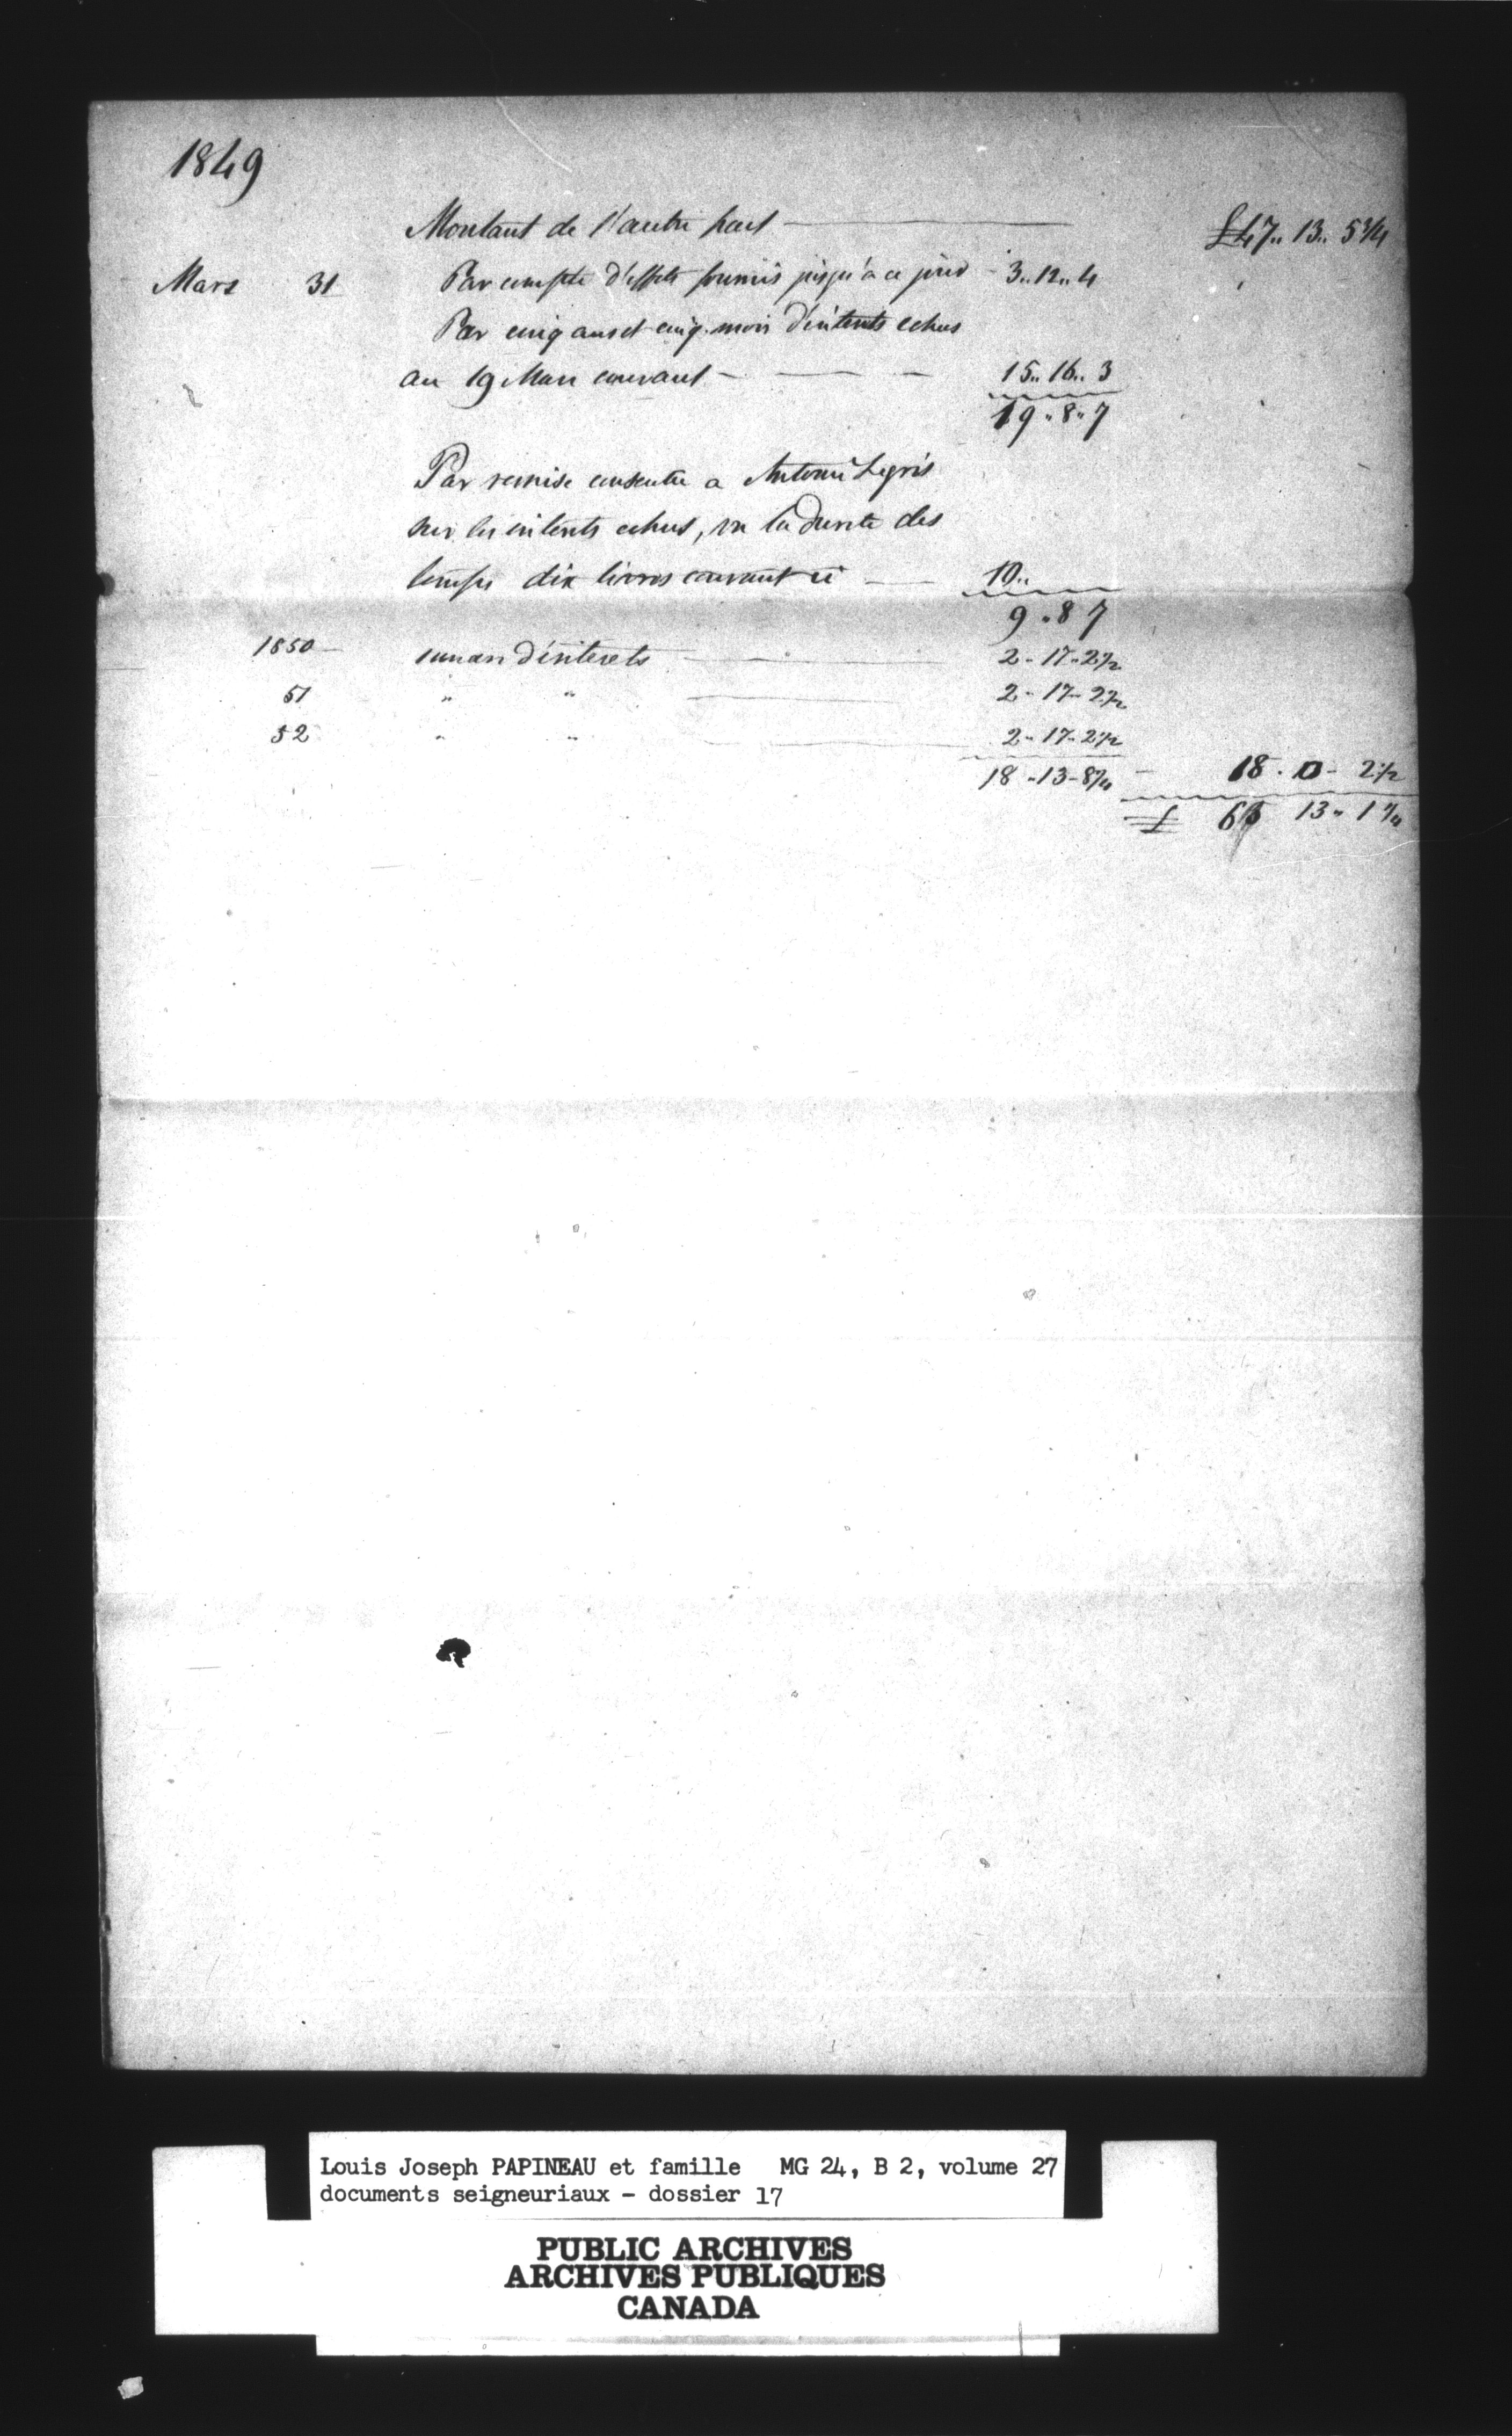 1849
Montant de l'autre part £47.. 13.. 5 3/4
Mars 31 Par compte d'effets fournis jusqu'à ce jour - 3.. 12.. 4
Par cinq ans et cinq mois d'intérêts echus
au 19 Mars courant - 15.. 16.. 3
19.. 8.. 7
Par remise consentie a Antoine Legris
sur les intérêts echus, vu la durete des
temps dix livres courant ci 10..
9.. 8 7
1850 1 un an d'intérêts 2.. 17.. 2 1/2
51 " " 2.. 17.. 2 1/2
52 " " 2.. 17.. 2 1/2
18 - 13 - 18 . 0 - 2 1/2
£ 13.. 1
Louis Joseph PAPINEAU et famille MG 24, B 2, volume 27
documents seigneuriaux - dossier 17
PUBLIC ARCHIVES
ARCHIVES PUBLIQUES
CANADA